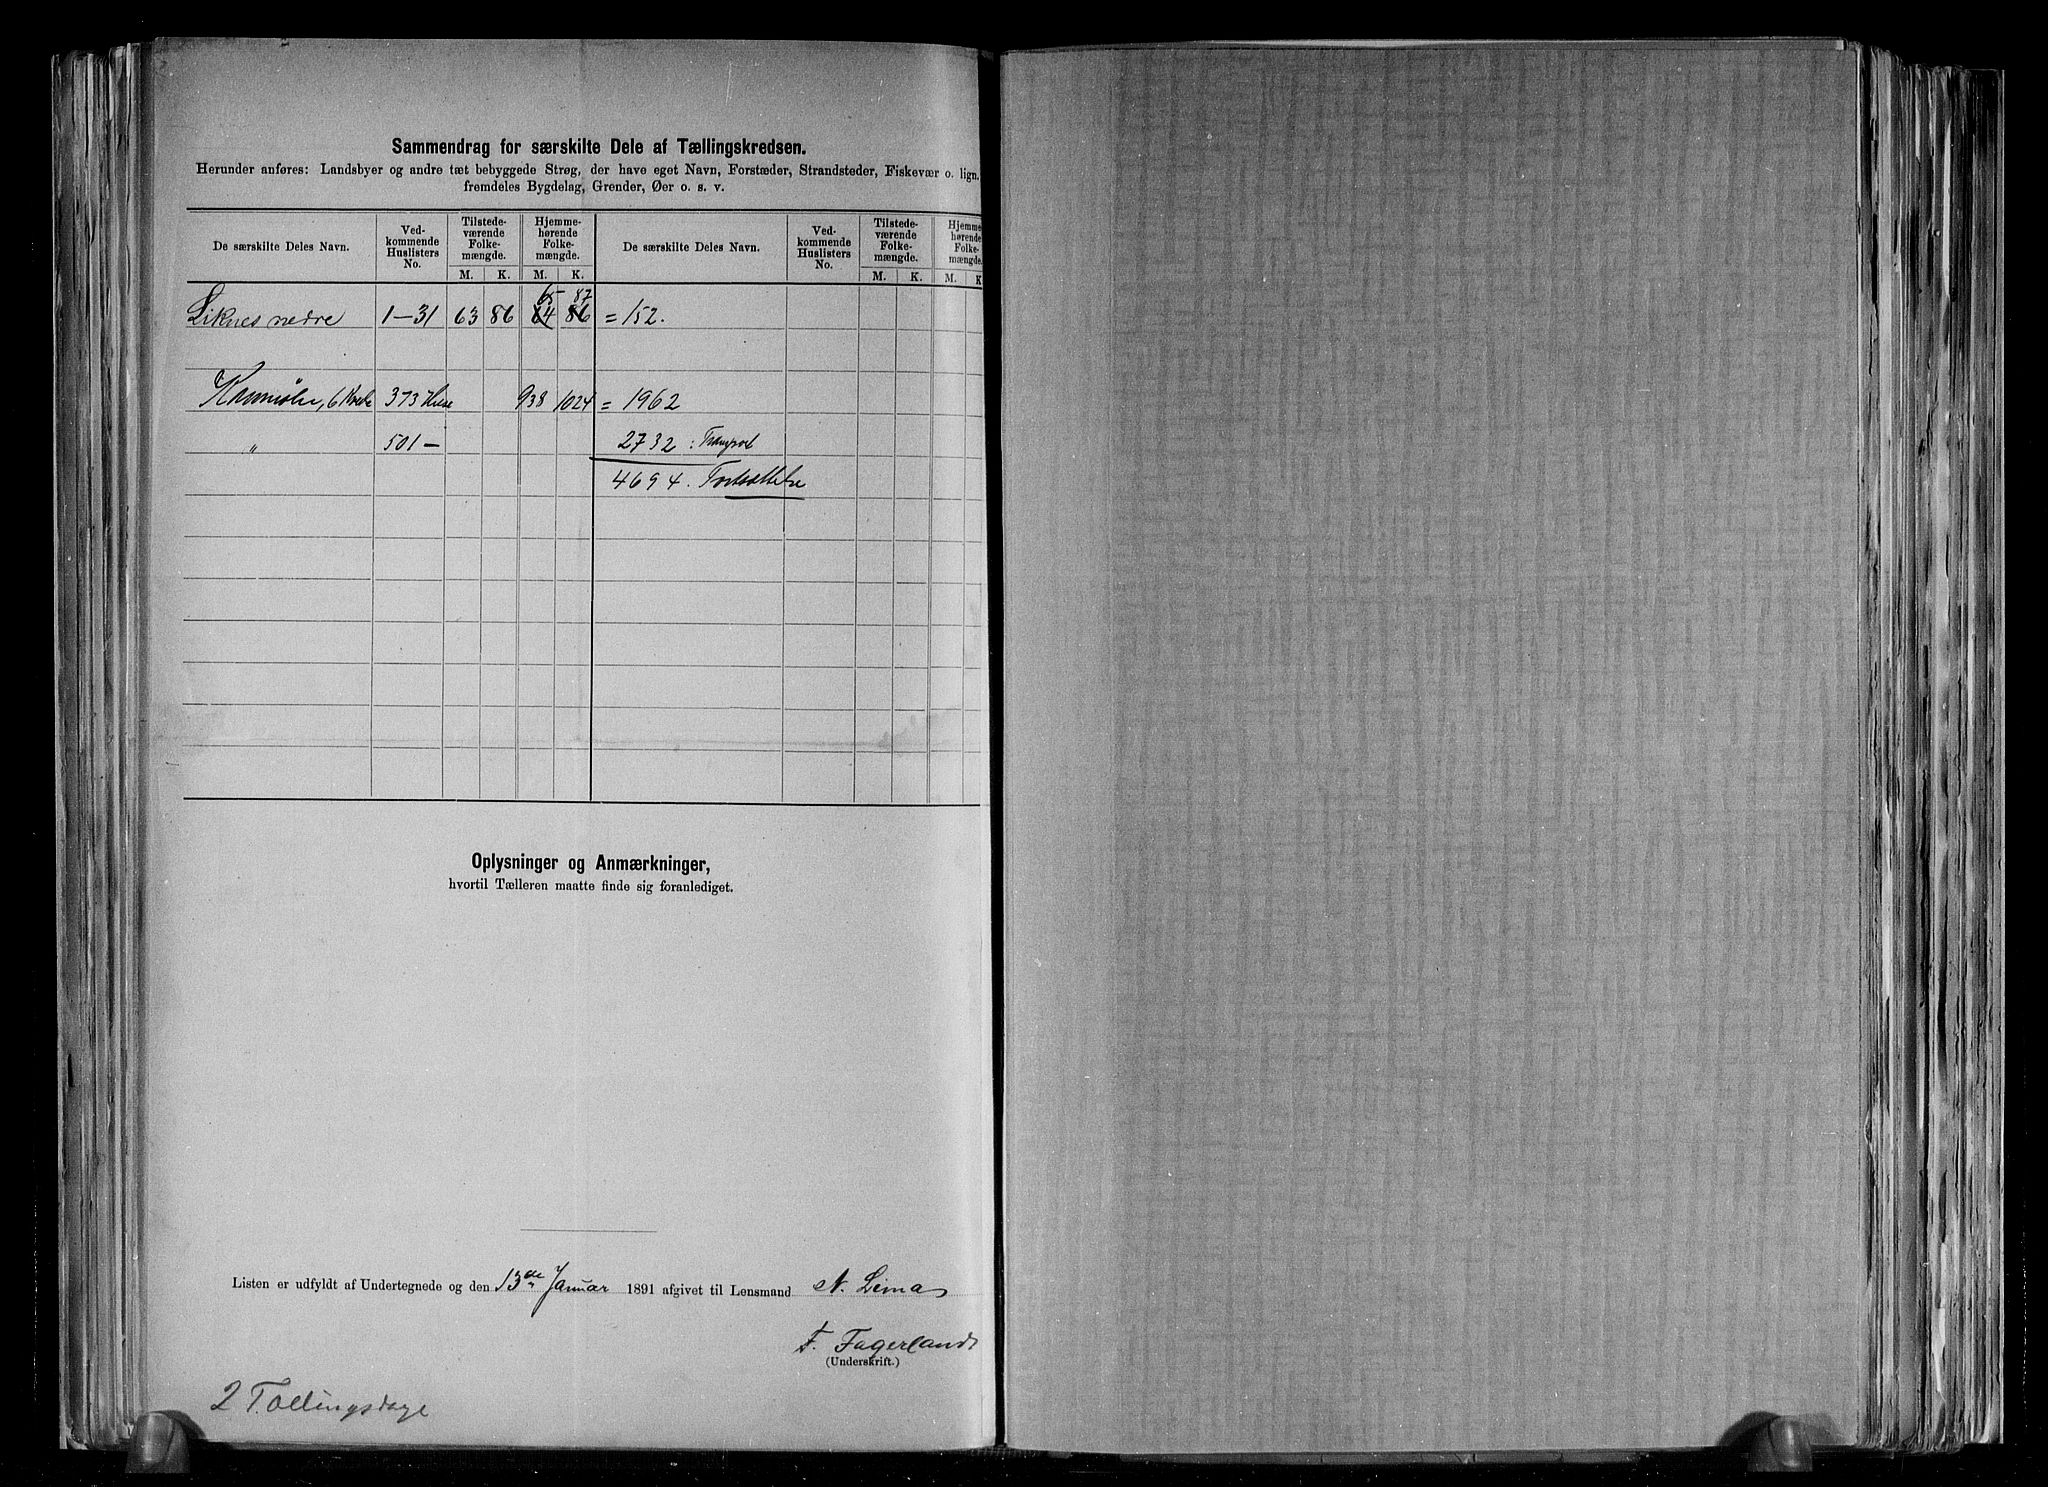 Sammendrag for særskilte Dele af Tællingskredsen.
Herunder anføres: Landsbyer og andre tæt bebyggede Strøg, der have eget Navn, Forstæder, Strandsteder, Fiskevær o. lign.
fremdeles Bygdelag, Grender, Øer o. s. v.
De særskilte Deles Navn. Ved-kommende Huslisters No. Tilstede-værende Folke-mængde. Hjemme-hørende Folke-mængde. De særskilte Deles Navn. Ved-kommende Huslisters No. Tilstede-værende Folke-mængde. Hjemme-hørende Folke-mængde.
M. K. M. K. M. K. M. K
65 87
Liknes nedre 1-31 63 86 64 86 = 152.
373 Huse 938 1024 = 1962
" 501 - 2732 : Transport
4694.
Oplysninger og Anmærkninger,
hvortil Tælleren maatte finde sig foranlediget.
Listen er udfyldt af Undertegnede og den 13de Januar 1891 afgivet til Lensmand N. Lima
F. Fagerland
(Underskrift.)
2 Tællingsdage